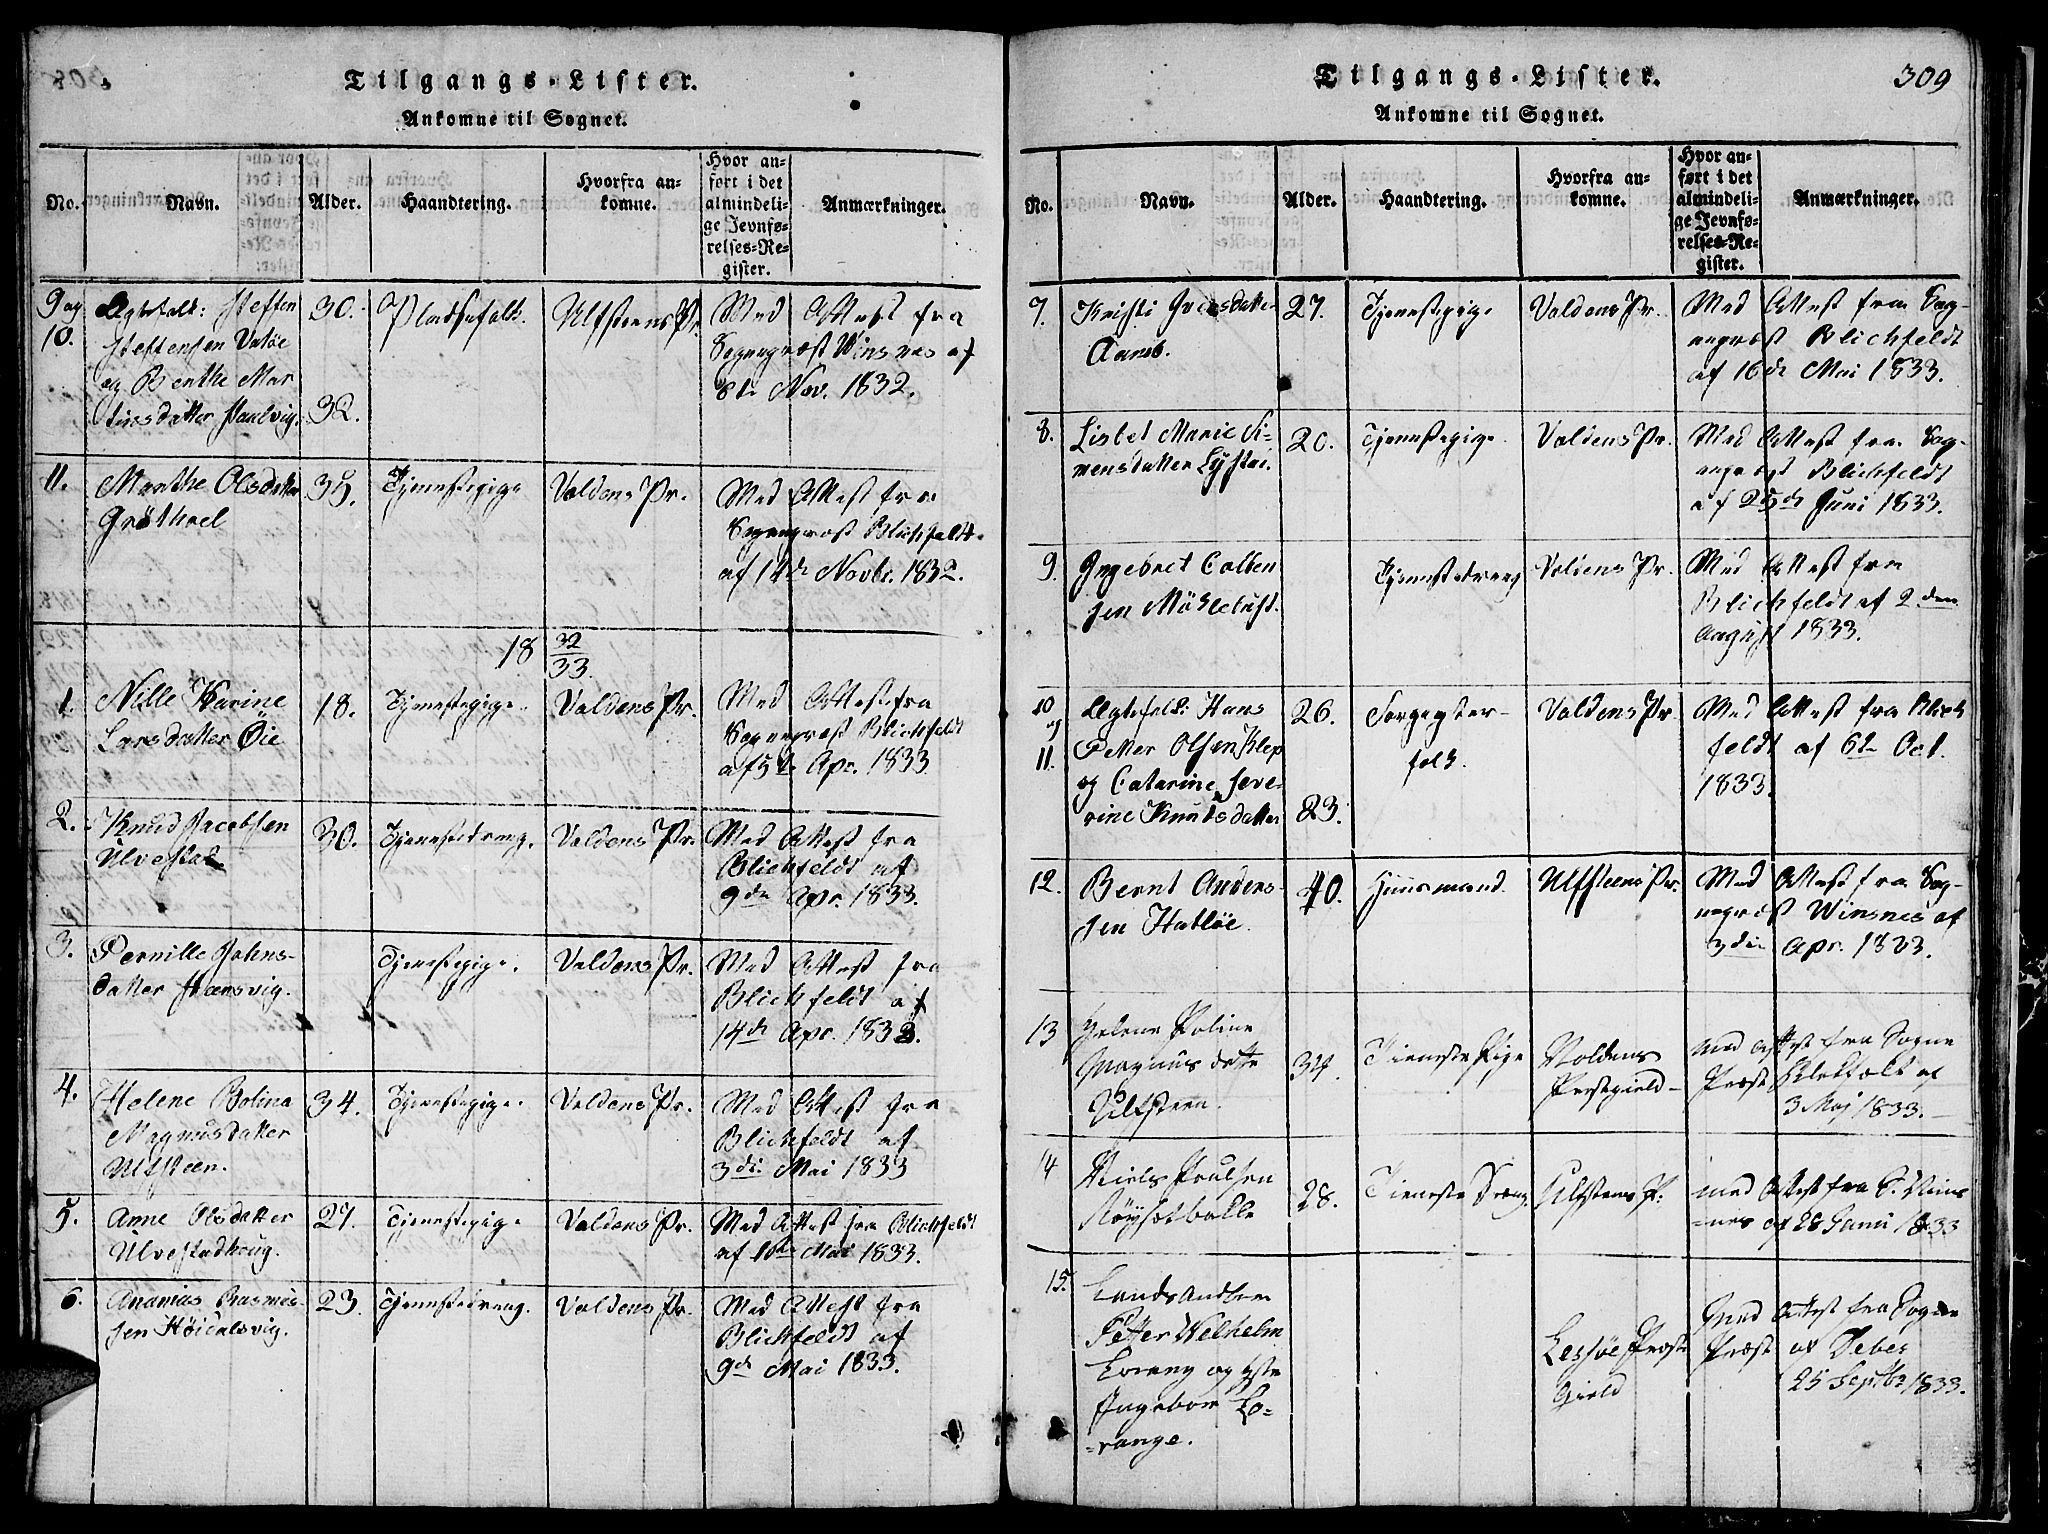 Tilgangs-Lister.
Ankomne til Sognet.
No.
Navn.
Alder.
Haandtering.
Hvorfra an-
komne.
Hvor an-
ført i det
almindeli-
ge Jevnfø-
relses-Re-
gister.
Anmærkninger.
9 og
10.
Ægtefolk: Steffen
Steffensen
og Benthe Mar
tinsdatter
30.
32.
Pladsefolk.
Ulfsteens Pr.
Med Attest fra
Sognepræst Winsnes af
8de Nov. 1832.
11.
Marthe Olsdatter
Grøthoel
35.
Tjenestepige
Voldens Pr.
Med Attest fra
Sognepræst Blichfeldt
af 14de Novbr. 1832.
18 32
33.
1.
Nille Karine
Larsdatter Øie
18.
Tjenestepige.
Voldens Pr.
Med Attest fra
Sognepræst Blichfeldt
af 5te Apr. 1833
2.
Knud Jacobsen
Ulvestad
30.
Tjenestedreng.
Voldens Pr.
Med Attest fra
Blichfeldt af
9de Apr. 1833.
3.
Pernille Johns-
datter
Tjenestepige.
Voldens Pr.
Med Attest fra
Blichfeldt af
14de Apr. 1833.
4.
Helene Bolina
Magnusdatter
Ulfsteen.
34.
Tjenestepige.
Voldens Pr.
Med Attest fra
Blichfeldt af
3die Mai 1833
5.
Anne Olsdatter
Ulvestadhoug.
27.
Tjenestepige
Voldens Pr.
Med Attest fra Blichfeldt
af Mai 1833.
6.
Ananias Rasmus-
sen Høidalsvig.
23.
Tjenestedreng.
Voldens Pr.
Med Attest fra
Blichfeldt af
9de Mai 1833.
Tilgangs-Lister.
309
Ankomne til Sognet.
No.
Navn.
Alder.
Haandtering.
Hvorfra an-
komne.
Hvor an-
ført i det
almindeli-
ge Jevnfø-
relses-Re-
gister.
Anmærkninger.
7.
Kristi
Aamb.
27.
Tjenestepige
Voldens Pr.
Med Attest fra Sog-
nepræst Blichfeldt
af 16de Mai 1833.
8.
Lisbet Marie Si-
mensdatter
20.
Tjenestepige.
Voldens Pr.
Med Attest fra Sog-
nepræst Blichfeldt
af 25de Juni 1833.
9.
Ingebret Colben
sen Møklebust.
Tjenestedreng
Voldens Pr.
Med Attest fra
Blichfeldt af 2den
August 1833.
10
og
11.
Ægtefolk: Hans
Petter Olsen Klep
og Catarine Seve-
rine Knutsdatter
26.
23.
folk.
Voldens Pr.
Med Attest fra Blich
feldt af 6te Oct.
1833.
12.
Bernt Anders-
sen Hatløe.
40.
Huusmand.
Ulfsteens Pr.
Med Attest fra Sog-
nepræst Winsnes af
3die Apr. 1833.
13
Helene Poline
Magnus datter
Ulfsteen.
34.
Tieneste Pige
Voldens
Prestegield-
med Attest fra Sogne
Præst af
3 Maj 1833.-
14
Niels Poulsen
28.
Tieneste Dreng
Ulfstens P:
med Attest fra S. Wins
=nes af 28 Juni 1833
15.
Landhandler
Petter Wilhelm
Lorang og
Ingebor Lo-
=range.
Lessøe Præste
Gield
med Attest fra Sogne
Præst
25 Septbr 1833.